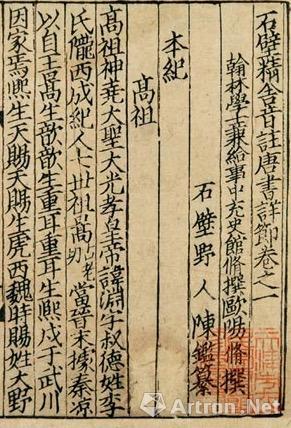 石壁精舍音註唐書詳節卷之一
翰林學士兼給事中充史館脩撰歐陽脩撰
石壁野人陳鑑纂
本紀
髙祖
髙祖神堯大聖大光孝皇帝諱淵字叔德姓李
氏隴西成紀人七世祖暠 當晉末據秦凉
以自王暠生歆歆生重耳重耳生熙戍于武川
因家焉熙生天賜天賜生虎西魏時賜姓大野
雅昌艺术网
Artron.Net